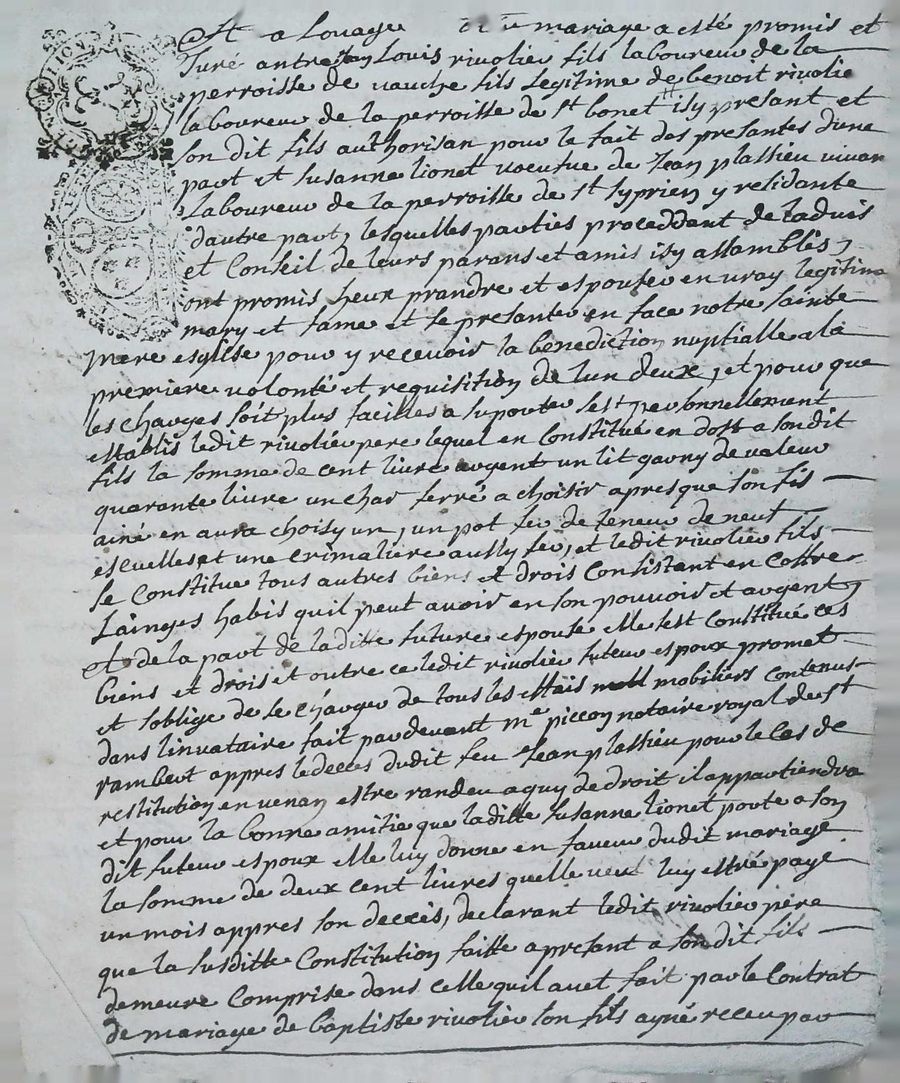 et a Louage de u mariage a esté promis et
Juré antre Jan Louis rivolier fils laboureur de la
perroisse de vauche fils legitime de benoit rivolie
laboureur de la perroisse de st bonet isy presant et
son dit fils authorisan pour le fait des presantes dune
part et susanne lionet voeufue de Jean plassieu vivan
Laboureur de la perroisse de st syprien y residante
dautre part, lesquelles parties proceddent de laduis
et Conseil de leurs parans et amis isy assamblés,
ont promis heux prandre et espouser en vray legitime
mary et fame et se presanter en face notre sainte
mere esglise pour y recevoir la benediction nuptialle a la
premiere volonté et requisition de lun deux, et pour que
les charges soit plus facilles a suporter sest personnellement
establis ledit rivolier pere lequel en Constitué en dost a sondit
fils la somme de cent livre argent un lit garny de valeur
quarante livre un char ferré a choisir apres que son fils
ainé en aura choisy un, un pot fer de teneur de neuf
escuelles et une crimaliere aussy fer, et ledit rivolier fils
se Constitue tous autres biens et drois Consistant en Coffre
Lainges habis quil peut avoir en son pouvoir et argent,
et de la part de la ditte future espouse elle sest Constitué ces
biens et drois et outre ce ledit rivolier futeur espoux promet
et soblige de se charger de tous les effais mobiliers contenus
dans linvataire fait par devant me piccon notaire royal de st
rambert appres le deces dudit feu Jean plassieu pour le Cas de
restitution en venan estre randeu a quy de droit il appartiendra
et pour la bonne amitie que laditte susanne lionet porte a son
dit futeur espoux elle luy donne en faveur dudit mariage
la somme de deux cent livres quelle veut luy estre payé
un mois appres son decces, declarant ledit rivolier pére
que la susditte Constitution faitte apresant a son dit fils
demeure comprise dans celle quil avet fait par le Contrat
de mariage de baptiste rivolier son fils ayné receu par